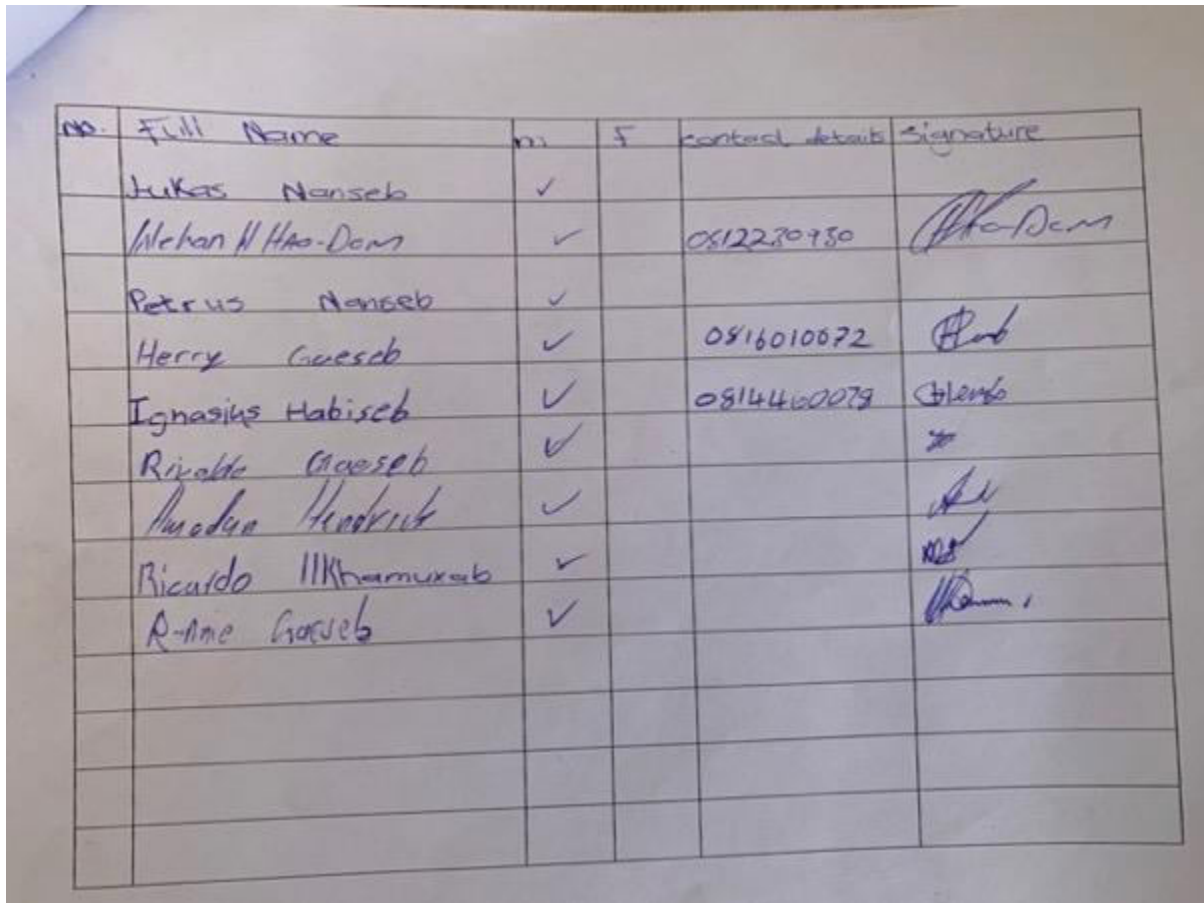 No. Full Name m F contact details signature
Lukas Nanseb ✓
Wehan N HAO-Dam ✓ 0812230930
Petrus Nanseb ✓
Herry Gaeseb ✓ 0816010072
Ignasius Habiseb ✓ 0814460079
Rivaldo Gaeseb ✓
Hendrick ✓
Ricardo IIKhamuxab ✓
Gaeseb ✓